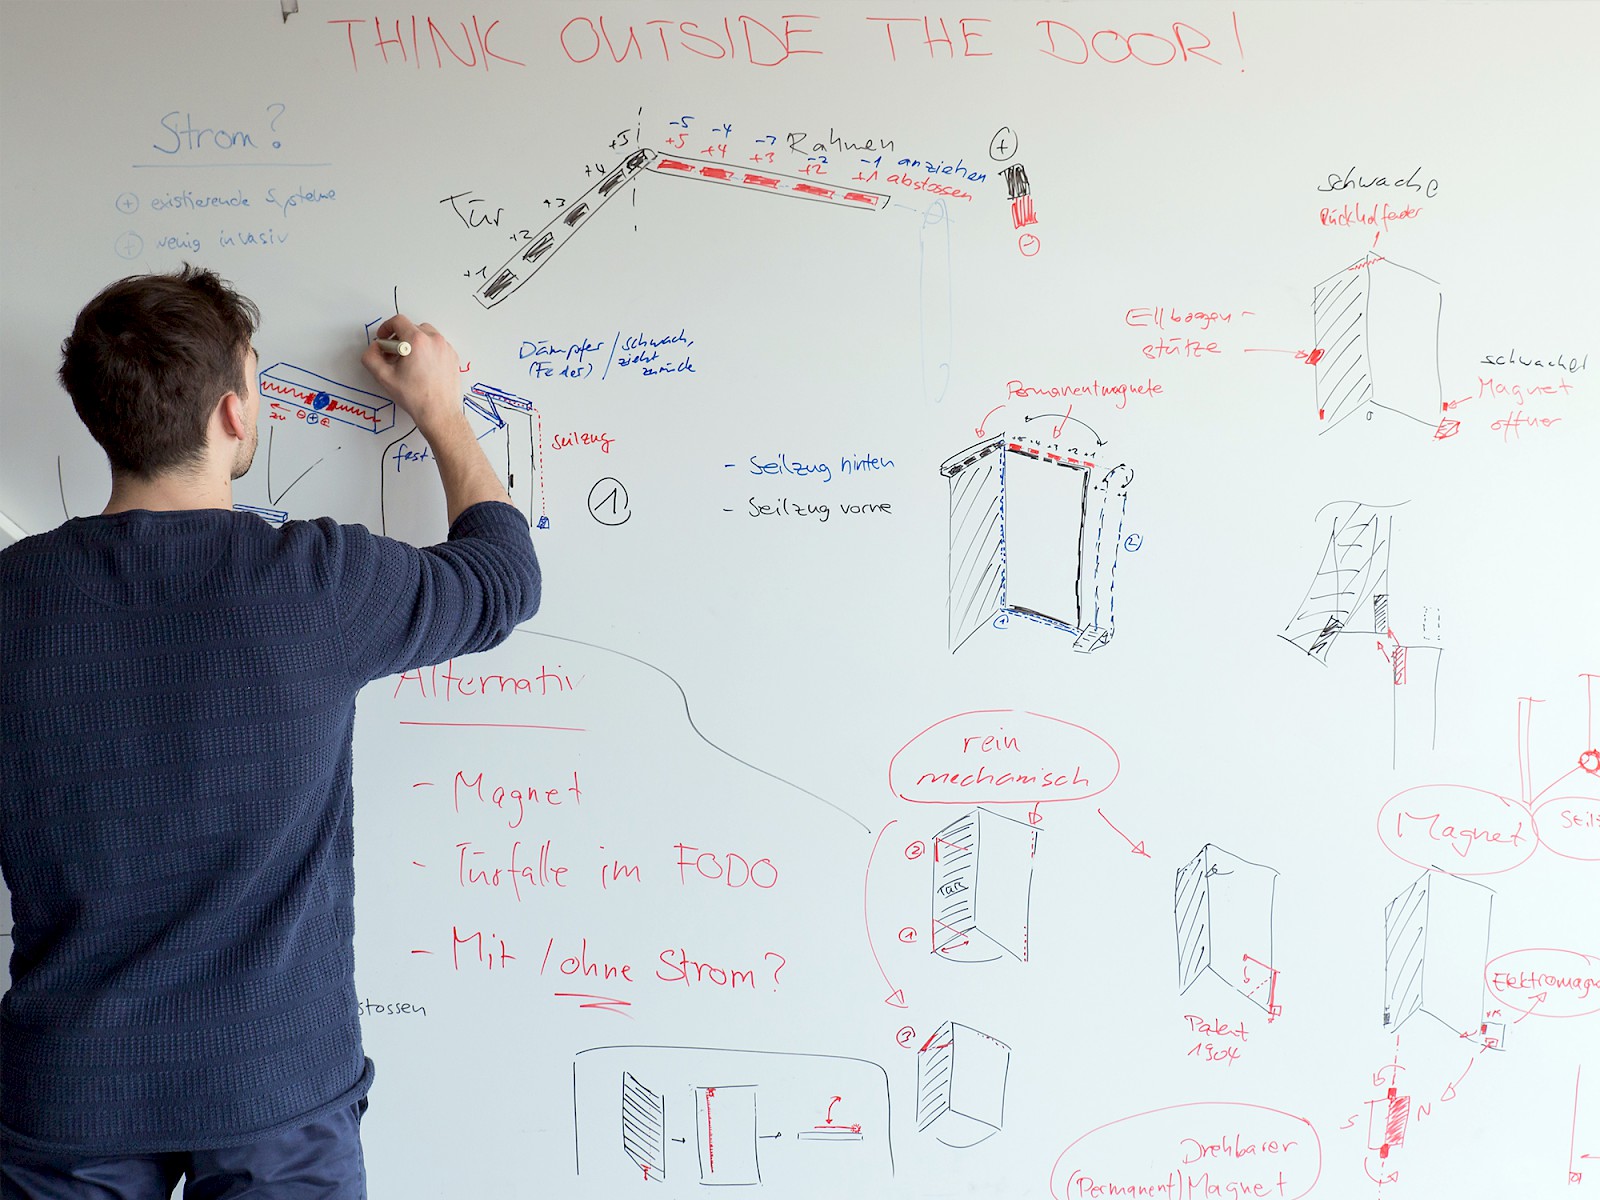 THINK OUTSIDE THE DOOR!
Strom?
+ existierende Systeme
+ wenig invasiv
Tür
+1
+2
+3
+4
+5
-5 -4 -3 -2 -1 anziehen
+5 +4 +3 +2 +1 abstossen
Rahmen
+
-
schwache
Rückholfeder
Ellbogen-
stütze
schwacher
Magnet
öffner
Dämpfer / schwach,
(Feder) zieht
zurück
zu
fest
Seilzug
1
- Seilzug hinten
- Seilzug vorne
Permanentmagnete
+5 +4 +3 +2 +1
1
2
Alternativ
- Magnet
- Türfalle im FODO
- Mit / ohne Strom?
stossen
rein
mechanisch
2
1
3
Patent
1904
Magnet
Elektromagn
S
N
Drehbarer
(Permanent) Magnet